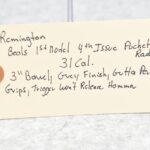 Remington
Beals' 1st Model 4th Issue Pocket
31 Cal.
3" Barrel, Grey Finish, Gutta
Grips, Trigger Won't Release Hammer